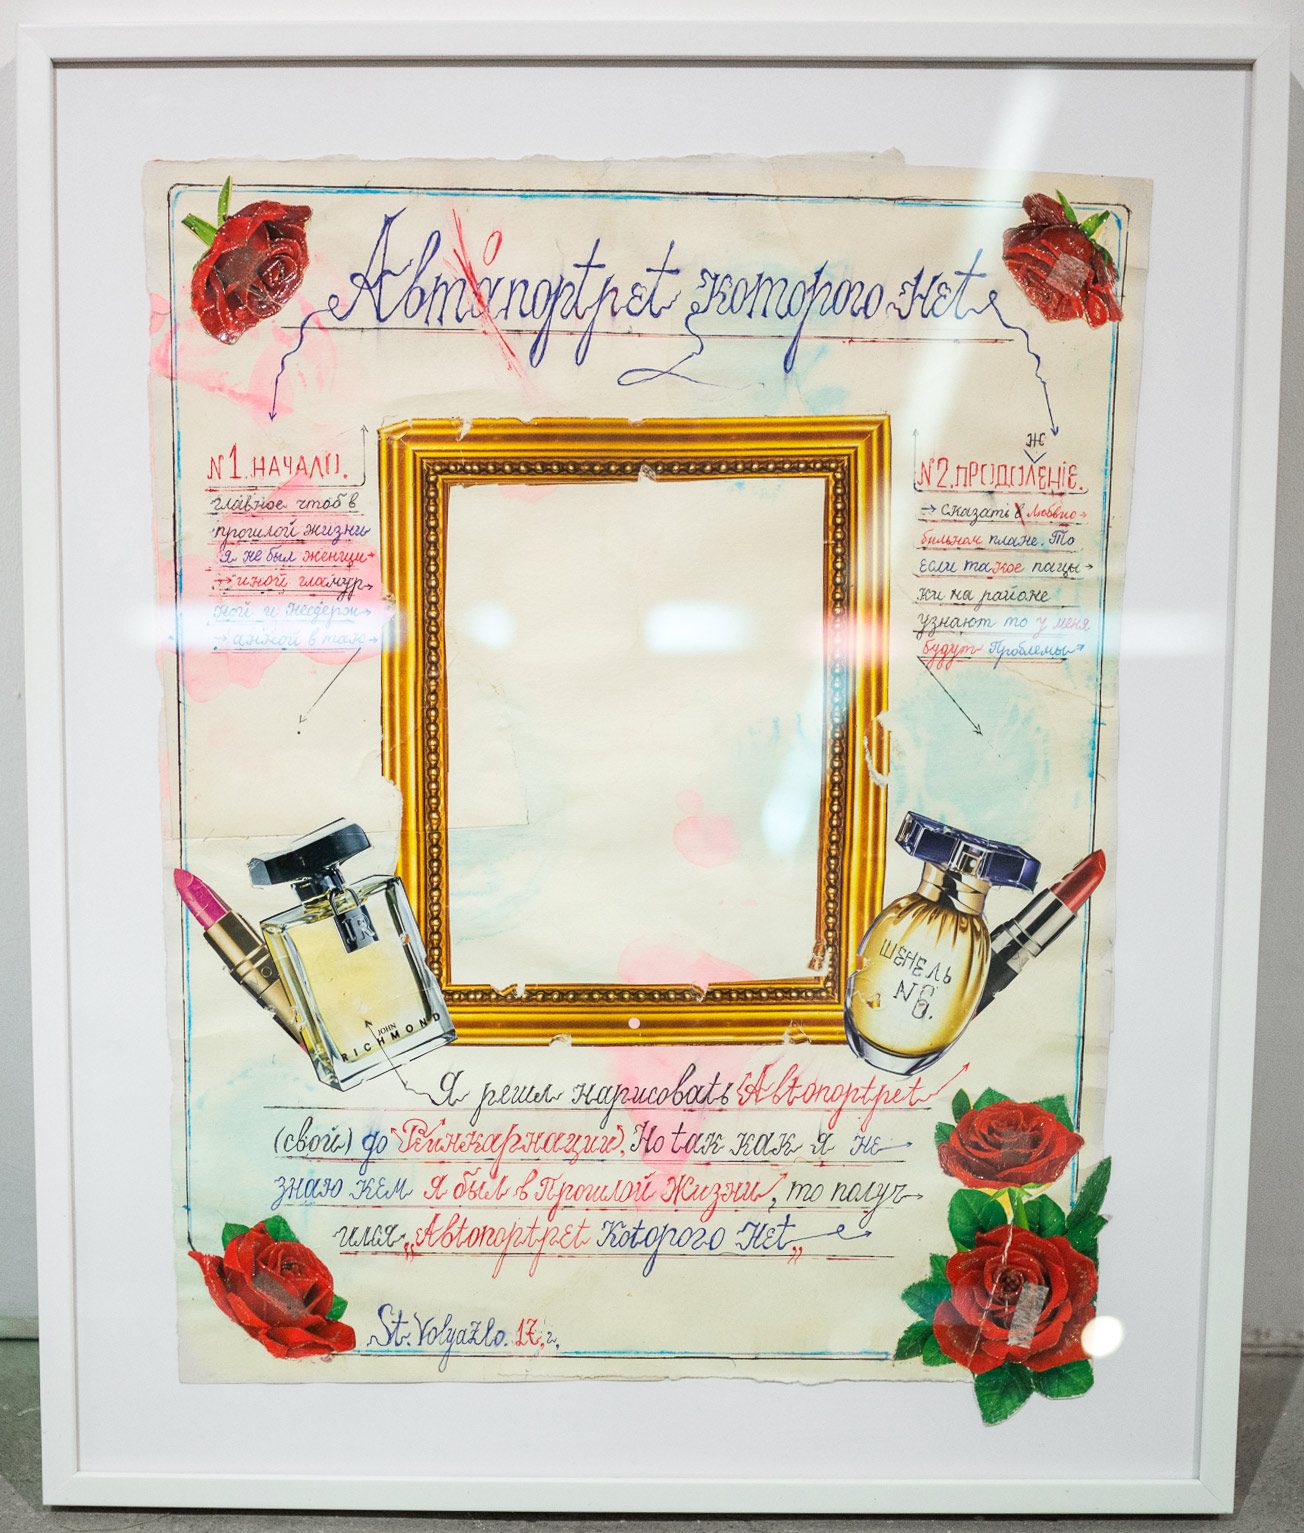 Автапортрет которого Нет
о
N1.НАЧАЛО.
главное чтоб в
прошлой жизни
я не был женщи
иной гламур
ной и несдерж
анной в таю
ж
N2.ПРОДОЛЕНIЕ.
сказать в любвио
бильном плане. То
если такое пацы
ки на районе
узнают то у меня
будут Проблемы
JR
JOHN
RICHMOND
ШЕНЕЛЬ
N6.
Я решл нарисовать Автопортрет
(свой) до Реинкарнации. Но так как я не
знаю кем я был в Прошлой Жизни, то получ
ился „Автопортрет Которого Нет„
St. Volyazlo. 17.г.